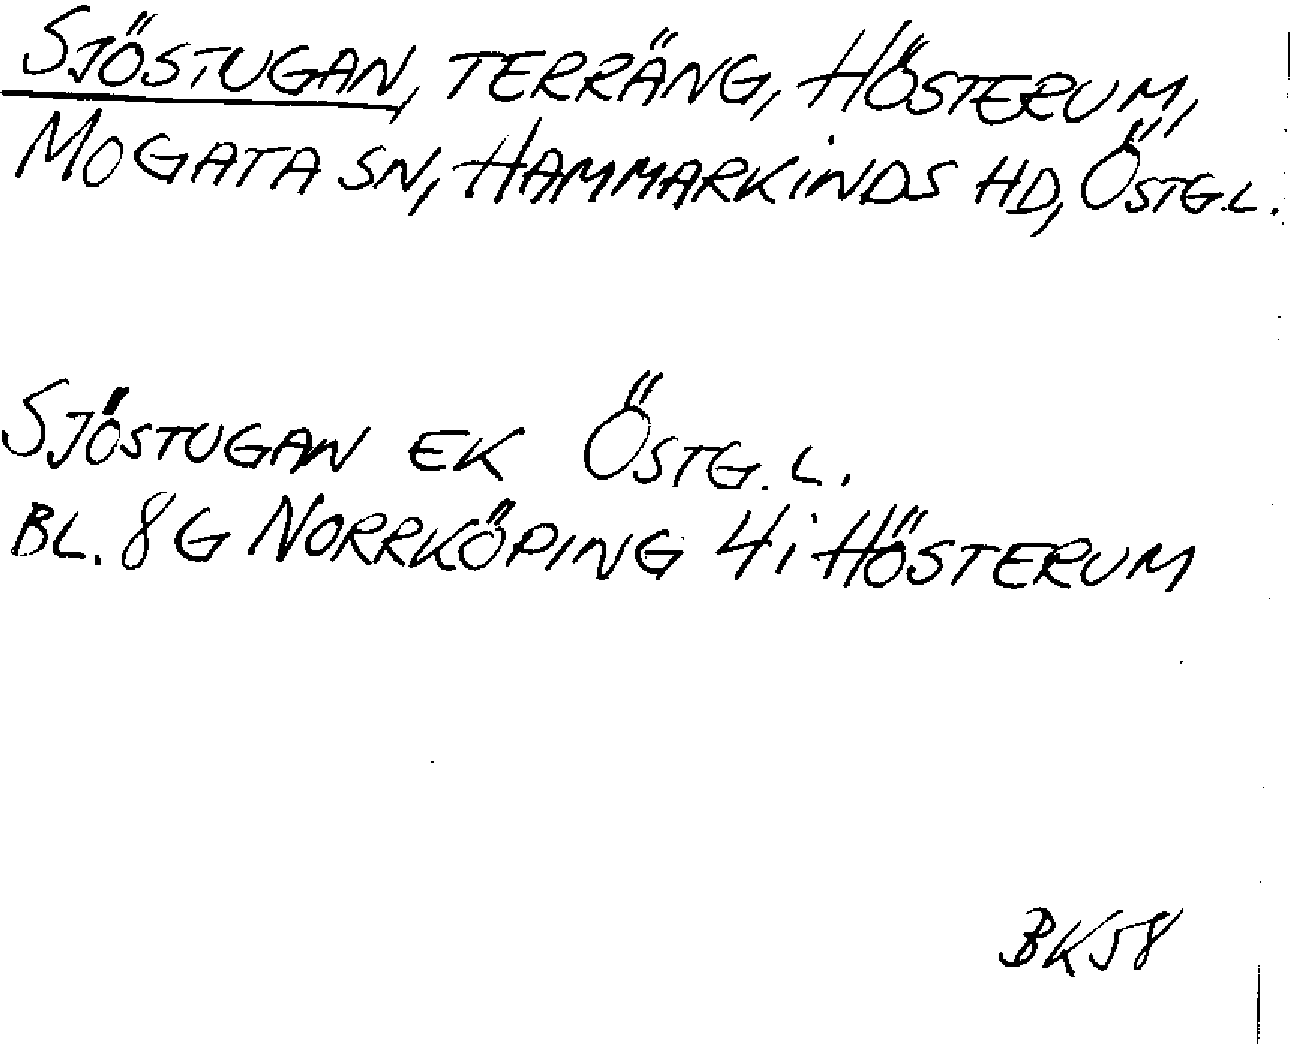 SJÖSTUGAN, TERRÄNG, HÖSTERUM,
MOGATA SN, HAMMARKINDS HD, ÖSTG.L.
SJÖSTUGAN EK ÖSTG. L.
BL. 8G NORRKÖPING 4i HÖSTERUM
BK58